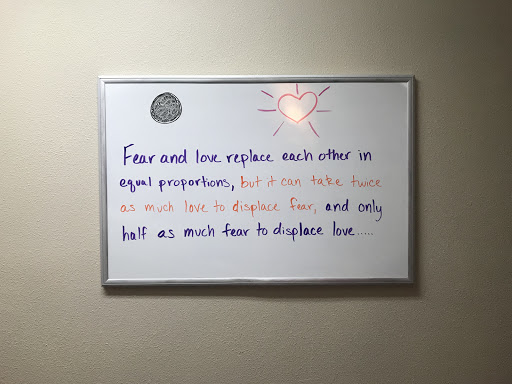 Fear and love replace each other in
equal proportions, but it can take twice
as much love to displace fear, and only
half as much fear to displace love.....